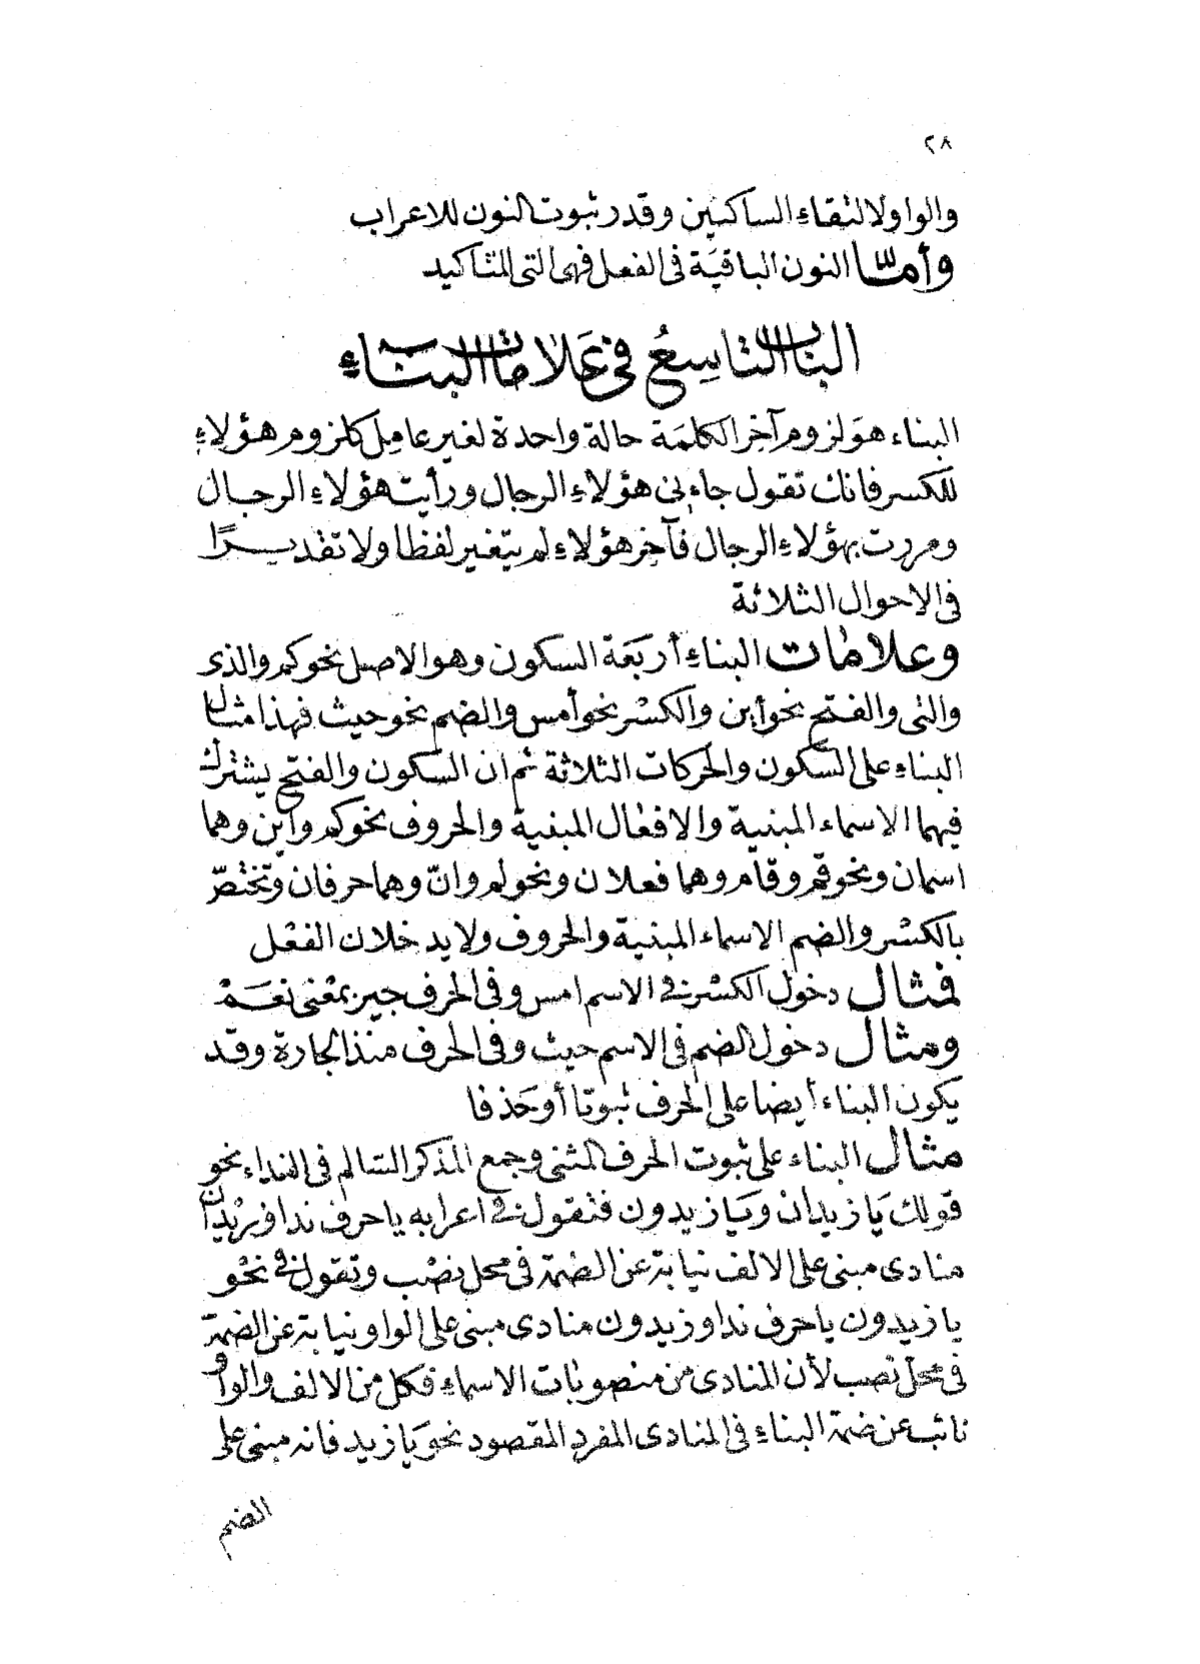 ٢٨
والواو لالتقاء الساكنين وقدر ثبوت النون للاعراب
وأمّا النون الباقية فى الفعل فهى التى للتاكيد
الباب التاسع فى علامات البناء
البناء هو لزوم آخر الكلمة حالة واحدة لغير عامل كلزوم هؤلاء
للكسر فانك تقول جاءنى هؤلاء الرجال ورأيت هؤلاء الرجال
ومررت بهؤلاء الرجال فآخر هؤلاء لم يتغير لفظا ولا تقديرًا
فى الاحوال الثلاثة
وعلامات البناء أربعة السكون وهو الاصل نحو كم والذى
والتى والفتح نحو أين والكسر نحو أمس والضم نحو حيث فهذا مثال
البناء على السكون والحركات الثلاثة ثم ان السكون والفتح يشترك
فيهما الاسماء المبنية والافعال المبنية والحروف نحو كم وأين وهما
اسمان ونحو قم وقام وهما فعلان ونحو لم وانّ وهما حرفان وتختصّ
بالكسر والضم الاسماء المبنية والحروف ولا يدخلان الفعل
فمثال دخول الكسر فى الاسم امس وفى الحرف جير بمعنى نعم
ومثال دخول الضم فى الاسم حيث وفى الحرف منذ الجارة وقد
يكون البناء أيضا على الحرف ثبوتا أو حذفا
مثال البناء على ثبوت الحرف المثنى وجمع المذكر السالم فى النداء نحو
قولك يا زيدان ويا زيدون فتقول فى اعرابه يا حرف ندا وزيدان
منادى مبنى على الالف نيابة عن الضمة فى محل نصب وتقول فى نحو
يا زيدون يا حرف ندا وزيدون منادى مبنى على الواو نيابة عن الضمة
فى محل نصب لأن المنادى من منصوبات الاسماء فكل من الالف والواو
نائب عن ضمة البناء فى المنادى المفرد المقصود نحو يا زيد فانه مبنى على
الضم